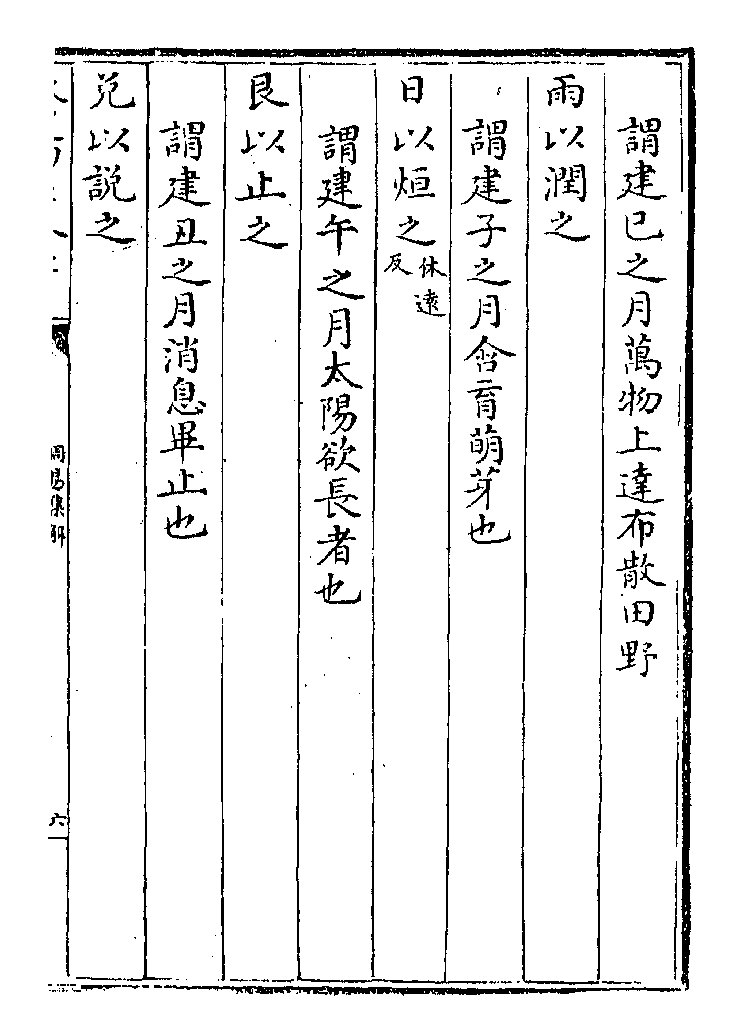 謂建巳之月萬物上達布散田野
雨以潤之
謂建子之月含育萌芽也
日以烜之休遠反
謂建午之月太陽欲長者也
艮以止之
謂建丑之月消息畢止也
兑以説之
周易集解
六